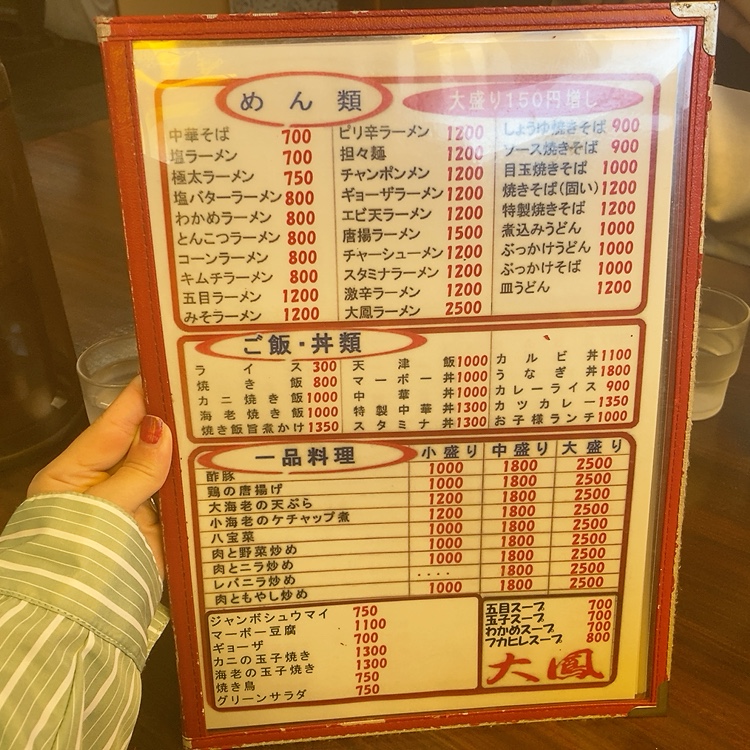 めん類
大盛り150円増し
中華そば 700
塩ラーメン 700
極太ラーメン 750
塩バターラーメン 800
わかめラーメン 800
とんこつラーメン 800
コーンラーメン 800
キムチラーメン 800
五目ラーメン 1200
みそラーメン 1200
ピリ辛ラーメン 1200
担々麺 1200
チャンポンメン 1200
ギョーザラーメン 1200
エビ天ラーメン 1200
唐揚ラーメン 1500
チャーシューメン 1200
スタミナラーメン 1200
激辛ラーメン 1200
大鳳ラーメン 2500
しょうゆ焼きそば 900
ソース焼きそば 900
目玉焼きそば 1000
焼きそば(固い) 1200
特製焼きそば 1200
煮込みうどん 1000
ぶっかけうどん 1000
ぶっかけそば 1000
皿うどん 1200
ご飯・丼類
ライス 300
焼き飯 800
カニ焼き飯 1000
海老焼き飯 1000
焼き飯旨煮かけ 1350
天津飯 1000
マーボー丼 1000
中華丼 1000
特製中華丼 1300
スタミナ丼 1300
カルビ丼 1100
うなぎ丼 1800
カレーライス 900
カツカレー 1350
お子様ランチ 1000
一品料理 小盛り 中盛り 大盛り
酢豚 1000 1800 2500
鶏の唐揚げ 1000 1800 2500
大海老の天ぷら 1200 1800 2500
小海老のケチャップ煮 1200 1800 2500
八宝菜 1000 1800 2500
肉と野菜炒め 1000 1800 2500
肉とニラ炒め 1000 1800 2500
レバニラ炒め ・・・・ 1800 2500
肉ともやし炒め 1000 1800 2500
ジャンボシュウマイ 750
マーボー豆腐 1100
ギョーザ 700
カニの玉子焼き 1300
海老の玉子焼き 1300
焼き鳥 750
グリーンサラダ 750
五目スープ 700
玉子スープ 700
わかめスープ 700
フカヒレスープ 800
大鳳